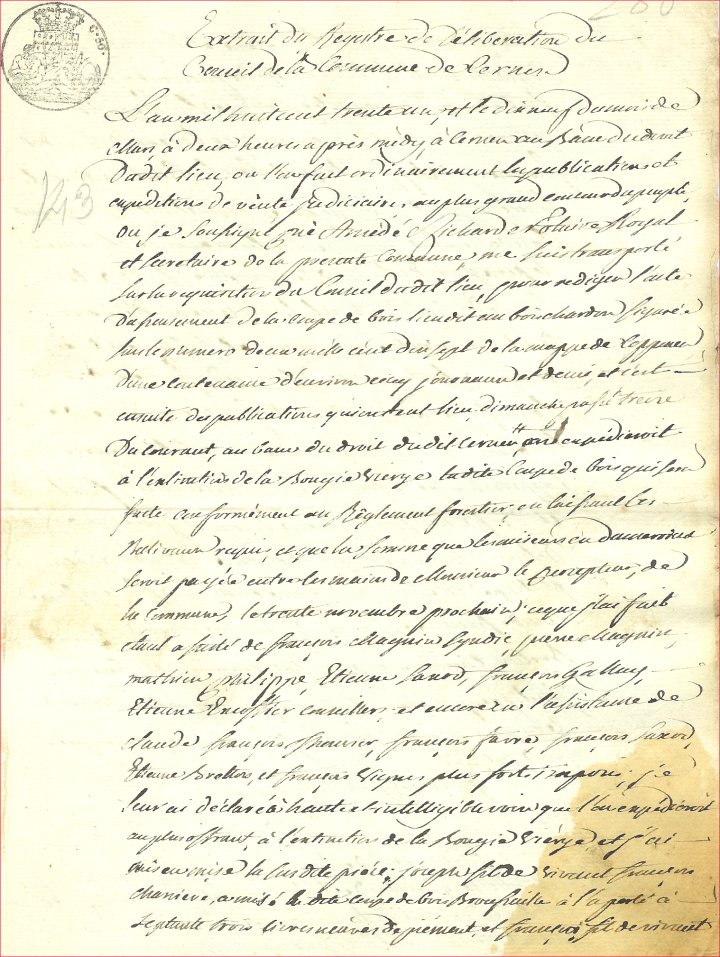 200
C. 50.
Extrait du Registre de Déliberation du
Conseil de la Commune de Cernex
L'an mil huit cent trente un, et le dix neuf du mois de
Mars à deux heures après midy, à Cernex au Banc du droit
dudit lieu, ou l'on fait ordinairement les publications et
expéditions de vente judiciaire, au plus grand concour du peuple,
143
ou je soussigné Amédé Richard Notaire Royal
et secretaire de la presente Commune, me suis transporté
sur la requisition du Conseil dudit lieu, pour rediger l'acte
d'affensement de la coupe de bois lieu dit au bois chardon figurée
sous le numero deux mille cent dix sept de la mappe de
d'une contenance d'environ cinq journaux et demi, et c'est
ensuite des publications qui ont eut lieu, dimanche passé treize
du courant, au banc du droit dudit Cernex, on expedieroit
à l'extinction de la Bougie vierge ladite Coupe de bois qui sera
faite conformément au Règlement forestier, en laissant les
Balivaux requis, et que la somme que les miseurs en donneroient
seroit payée entre les mains de Monsieur le percepteur, de
la Commune, le trente novembre prochain; ce que j'ai fait
étant assisté de françois Magnin Syndic, pierre Magnin,
mathieu philippe, Etienne Sanod, françois Gallay,
Etienne conseillers, et encore à l'assistance de
Claude françois françois favre, françois
Etienne et françois Vignes plus forts imposés; je
leur ai déclaré à haute et intelligible voix que l'on expédieroit
au plus offrant, à l'extinction de la Bougie Vierge et j'ai
mis en mise la susdite pièce; joseph fil de vivant françois
a misé ladite coupe de bois Broussaille à l'a porté à
septante trois livres neuves de piément, et françois fil de vivant